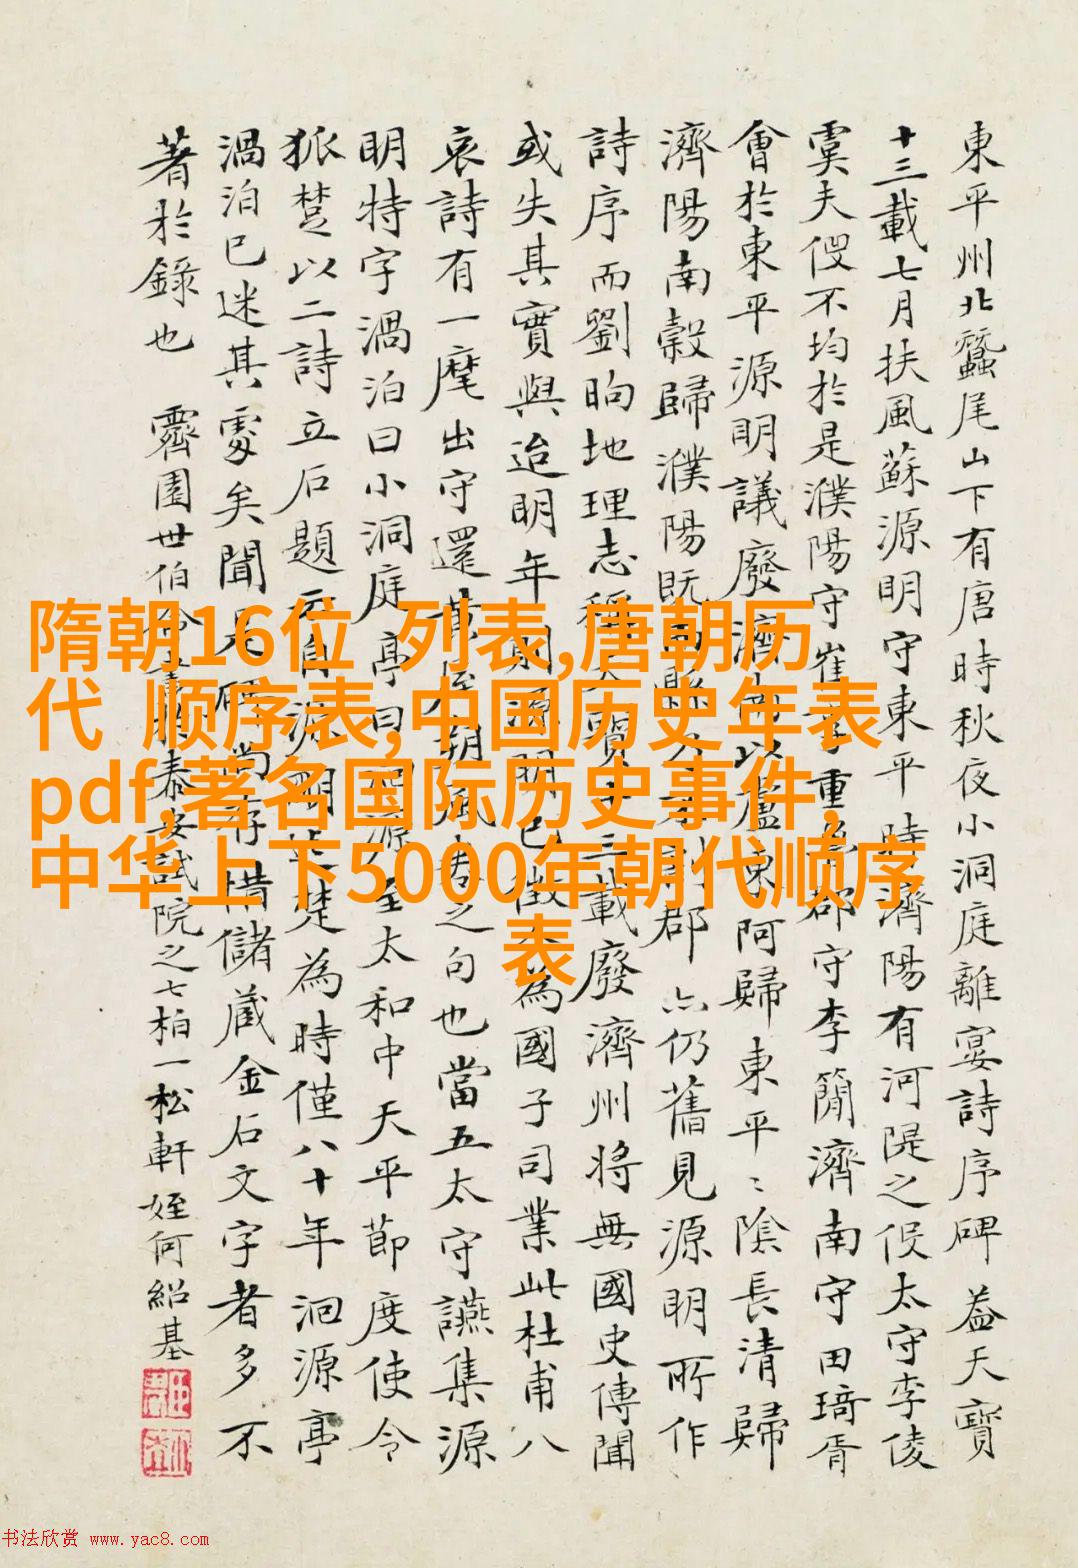 東平州北蠶尾山下有唐時秋夜小洞庭離宴詩序碑 蓋天寶
十三載七月扶風蘇源明守東平時濟陽有河隄之役太守李倰
虞夫役不均於是濮陽守崔季重魯郡守李簡濟南守田琦胥
會於東平源明議廢濟陽以盧東阿歸東平〻陰長清歸
濟陽南穀歸濮陽既 郡亦仍舊見源明所作
詩序而劉昫地理志稱天寶十三載廢濟州將無國史傳聞
或失其實與迨明年則源明已徵入為國子司業此杜甫八
哀詩有一麾出守還 朔風卷之句也當五太守讌集源
明特字渦泊曰小洞庭亭曰洄源至太和中天平節度使令
狐楚以二詩立石題 自源明迄楚為時僅八十年洄源亭
渦泊已迷其處矣聞 碑尚存惜儲蔵金石文字者多不
著於錄也 霽園世伯 泰安試院之七柏一松軒 姪何紹基
隋朝16位 列表,唐朝历
代 顺序表,中国历史年表
pdf,著名国际历史事件,
中华上下5000年朝代顺序
表
书法欣赏 www.yac8.com